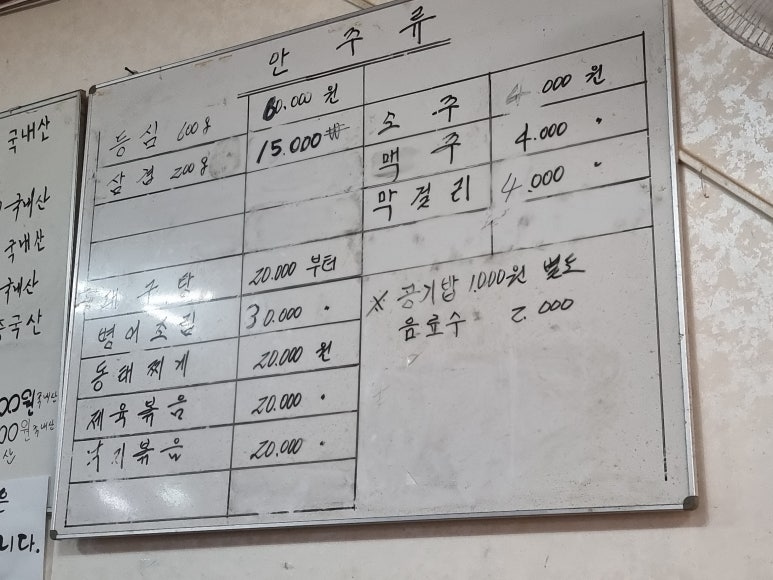 안 주 류
등 심 600g 60.000 원
삼 겹 200g 15.000₩
구 탕 20.000 부터
병 어 조 림 30.000 〃
동 태 찌 게 20.000 원
제 육 볶 음 20.000 〃
낙 지 볶 음 20.000 〃
소 주 4 000 원
맥 주 4.000 〃
막 걸 리 4.000 〃
※ 공기밥 1.000원 별도
음료수 2.000
국내산
국내산
국내산
국내산
중국산
00원 국내산
00원 국내산
산
은
니다.